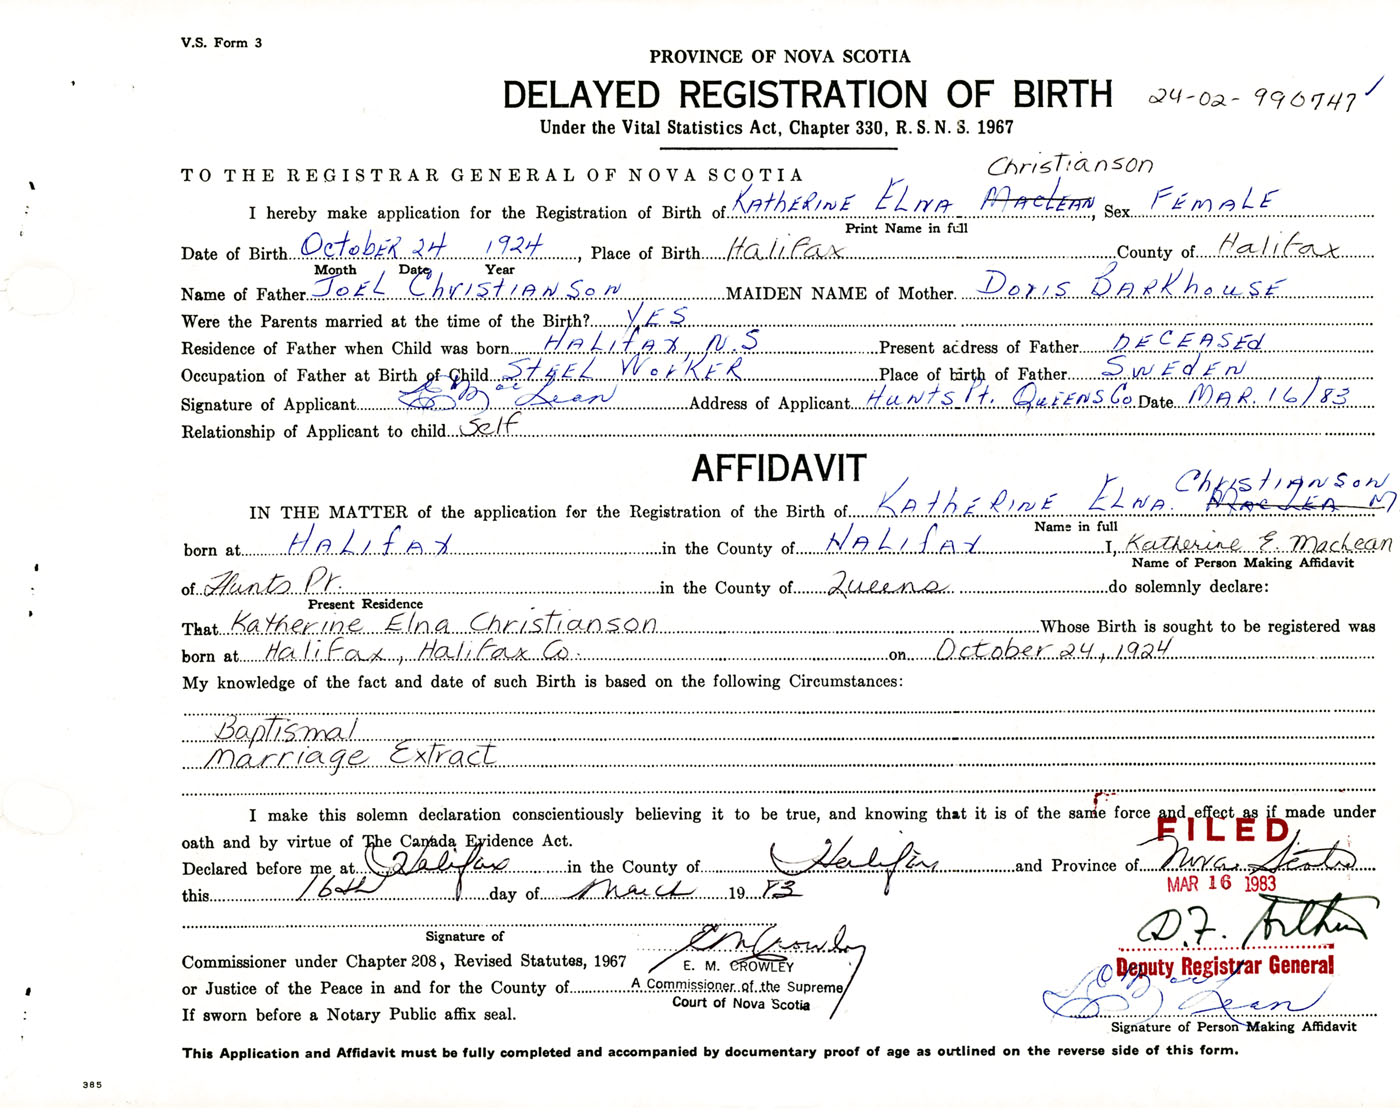 V.S. Form 3
PROVINCE OF NOVA SCOTIA
DELAYED REGISTRATION OF BIRTH 24-02-990747
Under the Vital Statistics Act, Chapter 330, R.S.N.S. 1967
Christianson
TO THE REGISTRAR GENERAL OF NOVA SCOTIA
I hereby make application for the Registration of Birth of KATHERINE ELNA MACLEAN, Sex FEMALE
Print Name in full
Date of Birth OCTOBER 24 1924, Place of Birth Halifax County of Halifax
Month Date Year
Name of Father JOEL CHRISTIANSON MAIDEN NAME of Mother DORIS BARKHOUSE
Were the Parents married at the time of the Birth? YES
Residence of Father when Child was born HALIFAX, N.S Present address of Father DECEASED
Occupation of Father at Birth of Child STEEL WORKER Place of birth of Father SWEDEN
Signature of Applicant MacLean Address of Applicant HUNTS Pt. QUEENS Co Date MAR. 16/83
Relationship of Applicant to child Self
AFFIDAVIT
CHRISTIANSON
IN THE MATTER of the application for the Registration of the Birth of KATHERINE ELNA MACLEAN
Name in full
born at HALIFAX in the County of HALIFAX I, Katherine E. MacLean
Name of Person Making Affidavit
of Hunts Pt. in the County of Queens do solemnly declare:
Present Residence
That Katherine Elna Christianson Whose Birth is sought to be registered was
born at Halifax, Halifax Co. on October 24, 1924
My knowledge of the fact and date of such Birth is based on the following Circumstances:
Baptismal
Marriage Extract
I make this solemn declaration conscientiously believing it to be true, and knowing that it is of the same force and effect as if made under
oath and by virtue of The Canada Evidence Act.
FILED
Declared before me at Halifax in the County of Halifax and Province of Nova Scotia
MAR 16 1983
this 16th day of March 1983
D.F. Arthur
Signature of E M Crowley
Commissioner under Chapter 208, Revised Statutes, 1967 E. M. CROWLEY
Deputy Registrar General
or Justice of the Peace in and for the County of A Commissioner of the Supreme
Court of Nova Scotia
MacLean
If sworn before a Notary Public affix seal.
Signature of Person Making Affidavit
This Application and Affidavit must be fully completed and accompanied by documentary proof of age as outlined on the reverse side of this form.
385